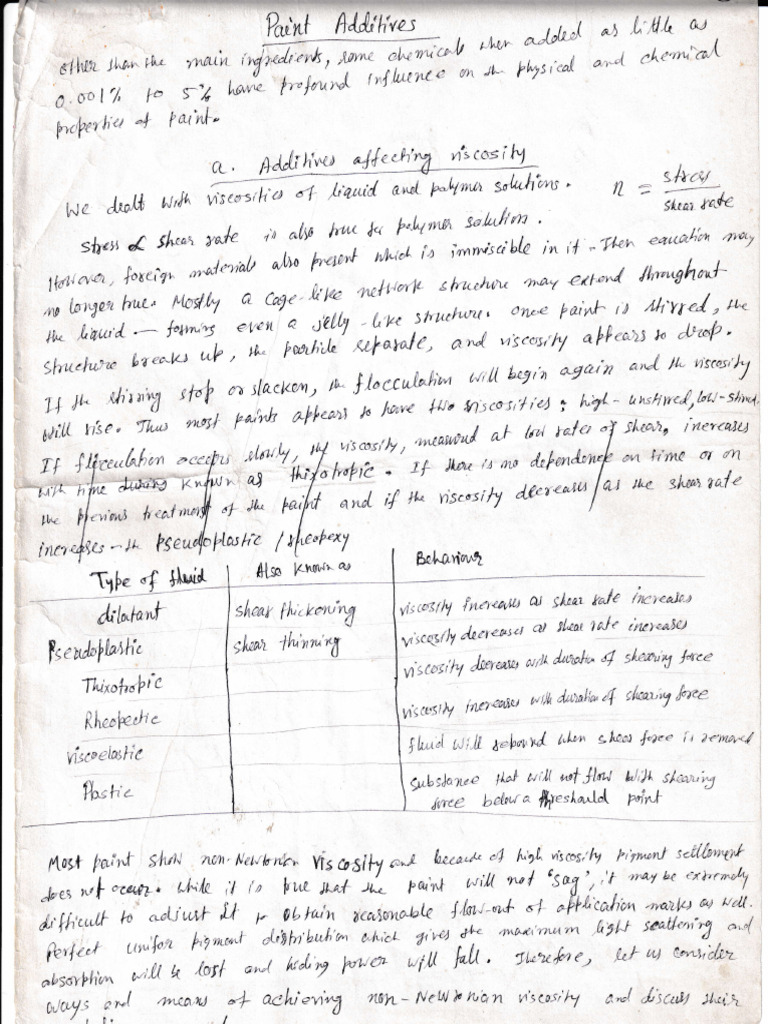 Paint Additives
other than the main ingredients, some chemicals when added as little as
0.001% to 5% have profound influence on the physical and chemical
properties of paint.
a. Additives affecting viscosity
We dealt with viscosities of liquid and polymer solutions. n = stress / shear rate
stress α shear rate is also true for polymer solution.
However, foreign materials also present which is immiscible in it - Then equation may
no longer true. Mostly a cage-like network structure may extend throughout
the liquid — forming even a jelly-like structure. once paint is stirred, the
structure breaks up, the particle separate, and viscosity appears to drop.
If the stirring stop or slacken, the flocculation will begin again and the viscosity
will rise. Thus most paints appears to have two viscosities; high-unstirred, low-stirred.
If flocculation occurs slowly, the viscosity, measured at low rates of shear, increases
with time during known as thixotropic. If there is no dependence on time or on
the previous treatment of the paint and if the viscosity decreases as the shear rate
increases - the pseudoplastic / rheopexy
Type of fluid Also known as Behaviour
dilatant shear thickening viscosity increases as shear rate increases
Pseudoplastic shear thinning viscosity decreases as shear rate increases
Thixotropic viscosity decreases with duration of shearing force
Rheopectic viscosity increases with duration of shearing force
viscoelastic fluid will rebound when shear force is removed
Plastic substance that will not flow with shearing
force below a threshould point
Most paint show non-Newtonian viscosity and because of high viscosity pigment settlement
does not occur. While it is true that the paint will not 'sag', it may be extremely
difficult to adjust it to obtain reasonable flow-out of application marks as well.
Perfect unifor pigment distribution which gives the maximum light scattering and
absorption will be lost and hiding power will fall. Therefore, let us consider
ways and means of achieving non-Newtonian viscosity and discuss their